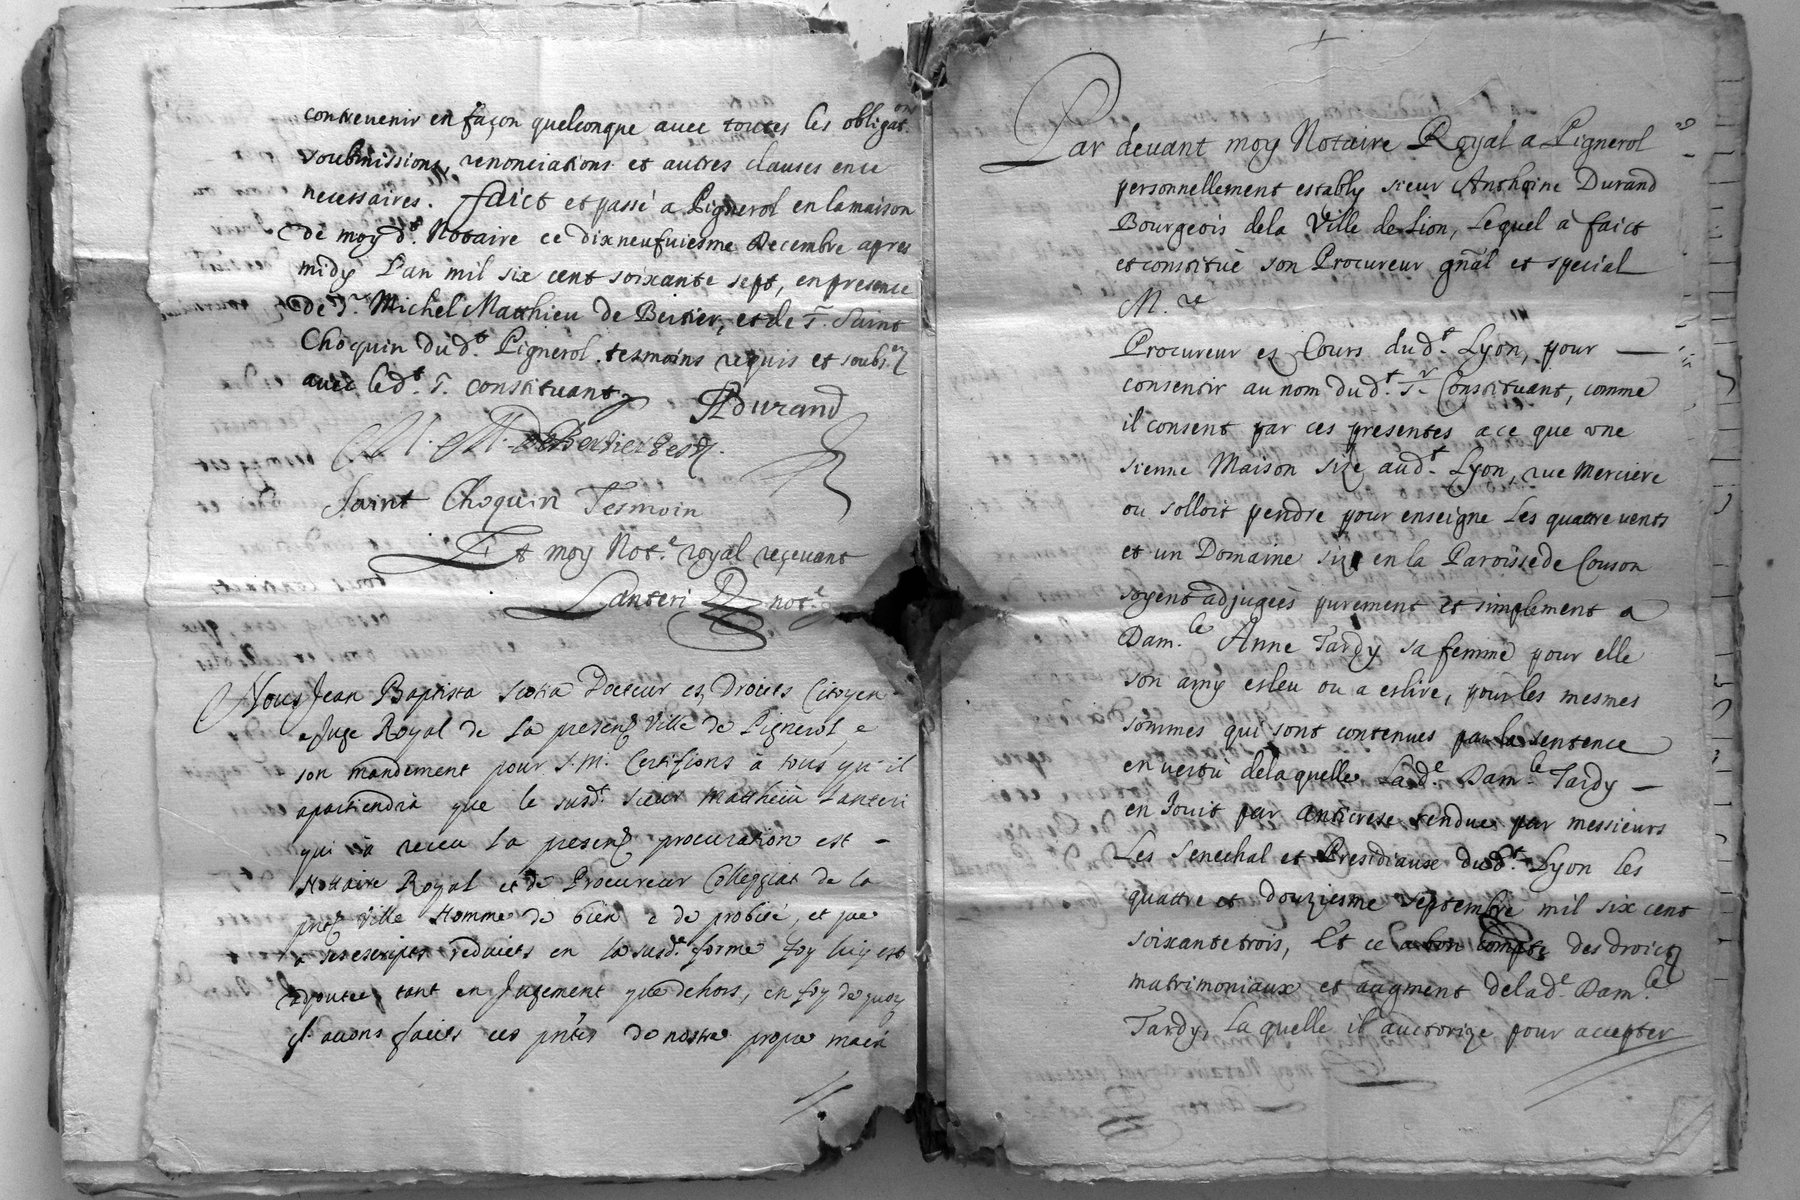 contrevenir en façon quelconque avec toutes les obligat.ons
soubmissions, renonciations et autres clauses en ce
necessaires. faict et passé a Pignerol en la maison
de moy d.t Notaire ce dixneufuiesme Decembre apres
midy L'an mil six cent soixante sept, en presence
de S.r Michel Matthieu de Bertier, et de S. Saint
Choquin dud.t Pignerol tesmoins requis et soubs.ez
avec led.t S. constituant
ADurand
M. M. DeBertier
Saint Choquin Tesmoin
Et moy Not.e royal reçevant
Lanteri not.e
Nous Jean Baptista Docteur es Droicts Citoyen
e Juge Royal de La present Ville de Pignerol, e
son mandement pour S. M. Certifions à tous qu'il
apartiendra que le susd.t sieur Mattheiu Lanteri
qui à receu La present procuration est -
Nottaire Royal et de Procureur Colleggiat de la
pnt Ville Homme de bien e de probité, et que
a ses escripts reduicts en la susd.e forme foy luy est
adjoutee, tant en Jugement que dehors, en foy de quoy
avons faicts ces pntes de nostre propre main
Par devant moy Notaire Royal a Pignerol
personnellement estably sieur Anthoine Durand
Bourgeois dela Ville de Lion, Lequel à faict
et constitué son Procureur gñal et special
M.re
Procureur es Cours dud.t Lyon, pour —
consentir au nom dud.t S.r Constituant, comme
il consent par ces presentes a ce que vne
sienne Maison size aud.t Lyon, rue Merciere
ou solloit pendre pour enseigne Les quattre vents
et un Domaine size en la Paroisse de Couson
soyent adjugées purement et simplement a
Dam.le Anne Tardy sa femme pour elle
son amy esleu ou a eslire, pour les mesmes
sommes qui sont contenues par la sentence
en vertu delaquelle Lad.e Dam.le Tardy —
en Jouit par anticrese rendue par messieurs
Les Senechal et Presidiaux dud.t Lyon les
quattre et douziesme Septembre mil six cent
soixante trois, Et ce a bon compte des droicts
matrimoniaux et augment delad.e Dam.le
Tardy, La quelle il auctorize pour accepter